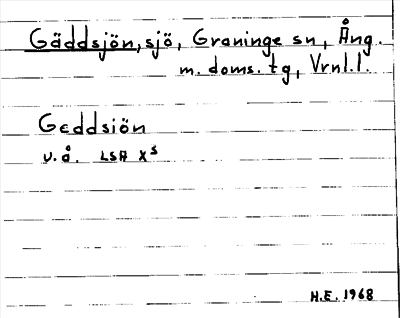 Gäddsjön, sjö, Graninge sn, Ång.
m. doms. tg, Vrnl.l.
Geddsiön
u.å. LSA X³
H.E. 1968